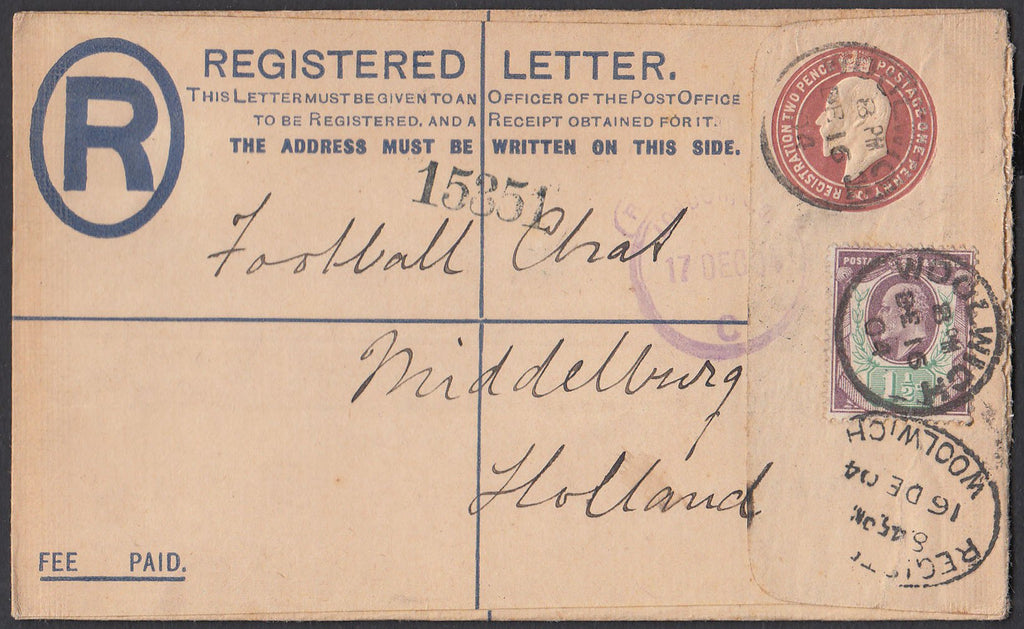 R
REGISTERED LETTER.
THIS LETTER MUST BE GIVEN TO AN OFFICER OF THE POST OFFICE
TO BE REGISTERED, AND A RECEIPT OBTAINED FOR IT.
THE ADDRESS MUST BE WRITTEN ON THIS SIDE.
REGISTRATION TWO PENCE POSTAGE ONE PENNY
15351
17 DEC 04
C
Football Chat
Middelburg
Holland
POSTAGE
WOOLWICH
8 PM
DE 16
04
1½
WOOLWICH
16 DE 04
8.45 PM
REGISTE
FEE PAID.